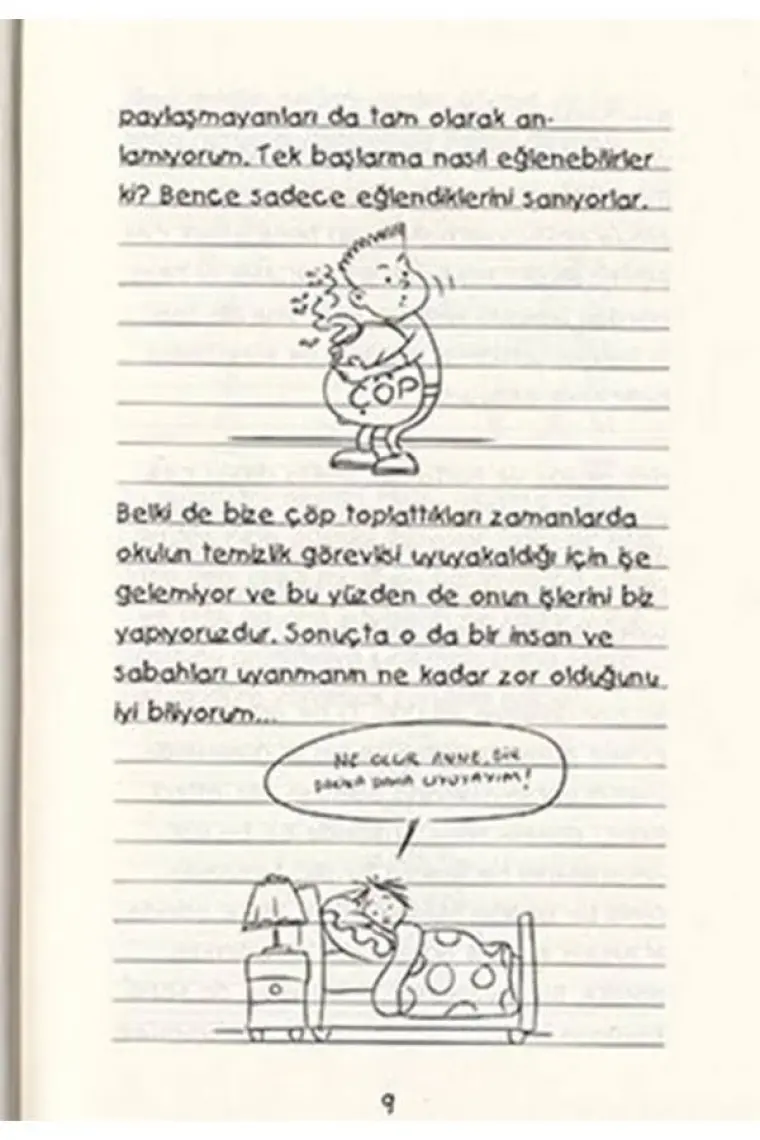 paylaşmayanları da tam olarak an-
lamıyorum. Tek başlarına nasıl eğlenebilirler
ki? Bence sadece eğlendiklerini sanıyorlar.
ÇÖP
Belki de bize çöp toplattıkları zamanlarda
okulun temizlik görevlisi uyuyakaldığı için işe
gelemiyor ve bu yüzden de onun işlerini biz
yapıyoruzdur. Sonuçta o da bir insan ve
sabahları uyanmanın ne kadar zor olduğunu
iyi biliyorum...
NE OLUR ANNE, BİR
DAKİKA DAHA UYUYAYIM!
9